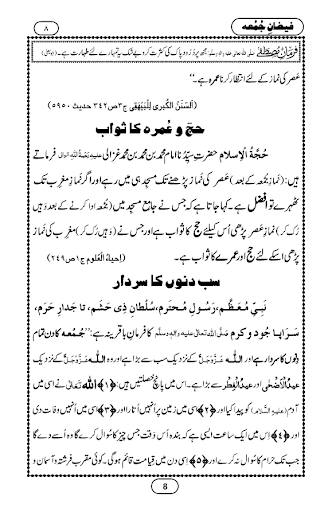 فیضانِ جُمُعہ
۸
فرمانِ مصطفےٰ صلی اللہ تعالٰی علیہ واٰلہ وسلم: مجھ پر دُرُود پاک کی کثرت کرو بے شک یہ تمہارے لئے طہارت ہے۔ (ابو یعلیٰ)
عَصر کی نماز کے لئے انتظار کرنا عمرہ ہے۔“
(اَلسُّنَنُ الکُبریٰ لِلْبَیْہَقِی ج۳ص۳۴۲ حدیث ۵۹۵۰)
حج و عُمرہ کا ثواب
حُجَّۃُ الْاِسلام حضرت سیّدُنا امام محمد بن محمد بن محمد غزالی علیہ رحمۃ اللہ الوالی فرماتے
ہیں: (نَمازِ جُمُعہ کے بعد) عَصر کی نماز پڑھنے تک مسجد ہی میں رہے اور اگر نَمازِ مغرب تک
ٹھہرے تو افضل ہے۔ کہا جاتا ہے کہ جس نے جامع مسجد میں (جُمُعہ ادا کرنے کے بعد وَہیں
رُک کر) نمازِ عَصر پڑھی اُس کیلئے حج کا ثواب ہے اور جس نے (وَہیں رُک کر) مغرِب کی نَماز
پڑھی اسکے لئے حج اور عمرے کا ثواب ہے۔ (اِحیاءُ الْعُلوم ج۱ ص۲۴۹)
سب دنوں کا سردار
نبیِّ مُعظَّم، رسولِ مُحترم، سُلطانِ ذِی حَشَم، تا جدارِ حرم،
سَراپا جُود و کرم صلی اللہ تعالٰی علیہ واٰلہ وسلم کا فرمانِ باقرینہ ہے: ”جُمُعہ کا دن تمام
دِنوں کا سردار ہے اور اللہ عَزَّوَجَلَّ کے نزدیک سب سے بڑا ہے اور وہ اللہ عَزَّوَجَلَّ کے نزدیک
عیدُالْاَضحٰی اور عیدُالْفِطْر سے بڑا ہے۔ اس میں پانچ خصلتیں ہیں: ﴿۱﴾ اللہ تعالٰی نے اسی میں
آدم (علیہ السلام) کو پیدا کیا اور ﴿۲﴾ اسی میں زمین پر اُنہیں اُتارا اور ﴿۳﴾ اسی میں اُنہیں وفات دی
اور ﴿۴﴾ اِس میں ایک ساعت ایسی ہے کہ بندہ اُس وَقت جس چیز کا سُوال کرے گا وہ اُسے دے گا
جب تک حرام کا سُوال نہ کرے اور ﴿۵﴾ اِسی دن میں قیامت قائم ہوگی۔ کوئی مقرب فرشتہ و آسمان و
8